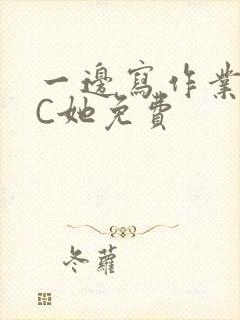 一邊寫作業
C她免費
冬蘿